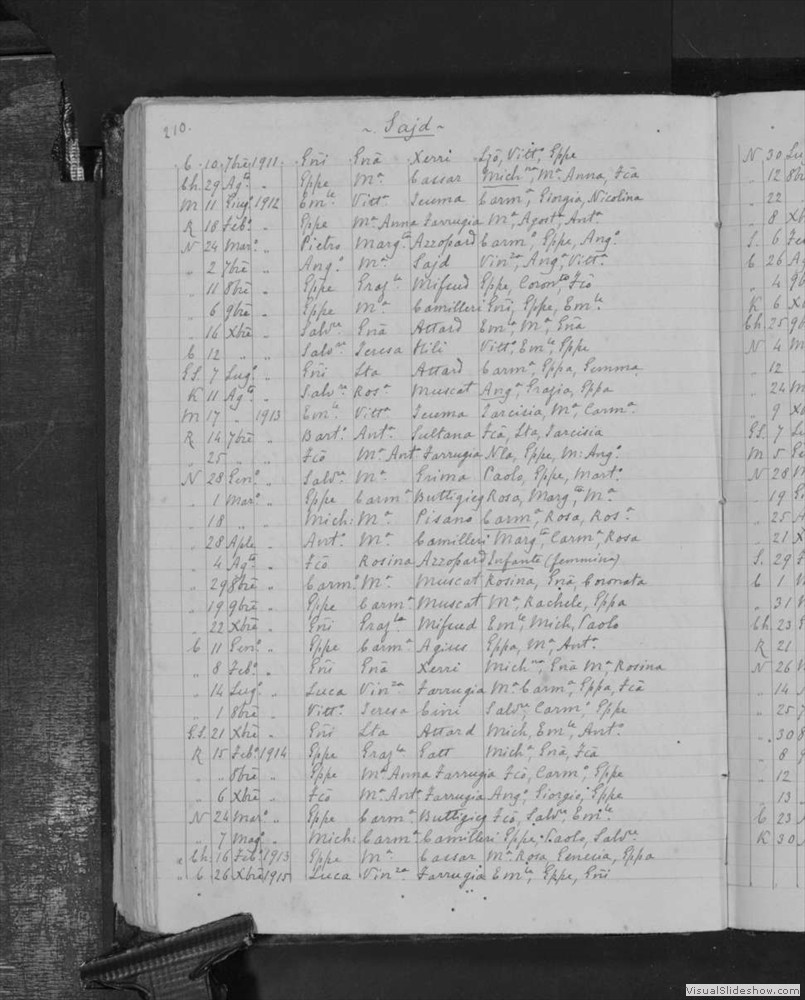 210.
~ Sajd ~
C 10 7bre 1911. Gñi Gnā Xerri Ljō, Vittº, Eppe
Ch 29 Agto „ Eppe Mª Cassar Michna, Mª Anna, Fcā
M 11 Giugº 1912 Emle Vittª Scuma Carmª, Giorgia, Nicolina
R 18 Febº „ Eppe Mª Anna Farrugia Mª, Agostª, Antª
N 24 Marº „ Pietro Margta Azzopard Carmº, Eppe, Angº
„ 2 7bre „ Angº Mª Sajd Vinza, Angª, Vittª
„ 11 8bre „ Eppe Grazla Mifsud Eppe, Coronto, Fcō
„ 6 9bre „ Eppe Mª Camilleri Gñi, Eppe, Emle
„ 16 Xbre „ Salvre Gnā Attard Emla, Mª, Gnā
C 12 „ „ Salvre Teresa Hili Vittº, Emle, Eppe
GS. 7 Lugº „ Gñi Sta Attard Carmª, Eppa, Gemma
K 11 Agto „ Salvre Rosª Muscat Angª, Grazia, Eppa
M 17 „ 1913 Emle Vittª Scuma Tarcisia, Mª, Carmª
R 14 7bre „ Bartº Antª Sultana Fcā, Sta, Tarcisia
„ 25 „ „ Fcō Mª Antª Farrugia Nla, Eppe, M: Angº
N 28 Genº „ Salvre Mª Grima Paolo, Eppe, Martº
„ 1 Marº „ Eppe Carmª Buttigieg Rosa, Margta, Mª
„ 18 „ „ Mich: Mª Pisano Carmª, Rosa, Rosª
„ 28 Aple „ Antº Mª Camilleri Margta, Carmª, Rosa
„ 4 Agto „ Fcō Rosina Azzopard Infante (femmina)
„ 29 8bre „ Carmº Mª Muscat Rosina, Gnā, Coronata
„ 19 9bre „ Eppe Carmª Muscat Mª, Rachele, Eppa
„ 22 Xbre „ Gñi Grazla Mifsud Emle, Mich, Paolo
C 11 Genº „ Eppe Carmª Agius Eppa, Mª, Antª
„ 8 Febº „ Gñi Gnā Xerri Michna, Gnā Mª Rosina
„ 14 Lugº „ Luca Vinza Farrugia Mª Carmª, Eppa, Fcā
„ 1 8bre „ Vittº Teresa Cini Salvre, Carmº, Eppe
GS. 21 Xbre „ Gñi Sta Attard Mich, Emle, Antº
R 15 Febº 1914 Eppe Grazla Gatt Michª, Gnā, Fcā
„ „ 8bre „ Eppe Mª Anna Farrugia Fcō, Carmº, Eppe
„ 6 Xbre „ Fcō Mª Antª Farrugia Angº, Giorgio, Eppe
N 24 Marº „ Eppe Carmª Buttigieg Fcō, Salvre, Emle
„ 7 Magº „ Mich: Carmª Camilleri Eppe, Paolo, Salvre
„ Ch 16 Febº 1913 Eppe Mª Cassar Mª Rosa, Genoua, Eppa
„ C 26 Xbre 1915 Luca Vinza Farrugia Emle, Eppe, Gñi
N 30
„ 12
„ 22
„ 8
S. 6
C 26
„ 4
K 6
Ch 25
N 4
„ 12
„ 24
„ 9
GS. 7
M 5
N 28
„ 19
„ 25
„ 21
S. 29
C 1
„ 31
Ch 23
R 21
N 26
„ 14
„ 25
„ 30
„ 8
„ 12
„ 13
C 23
K 30
VisualSlideshow.com